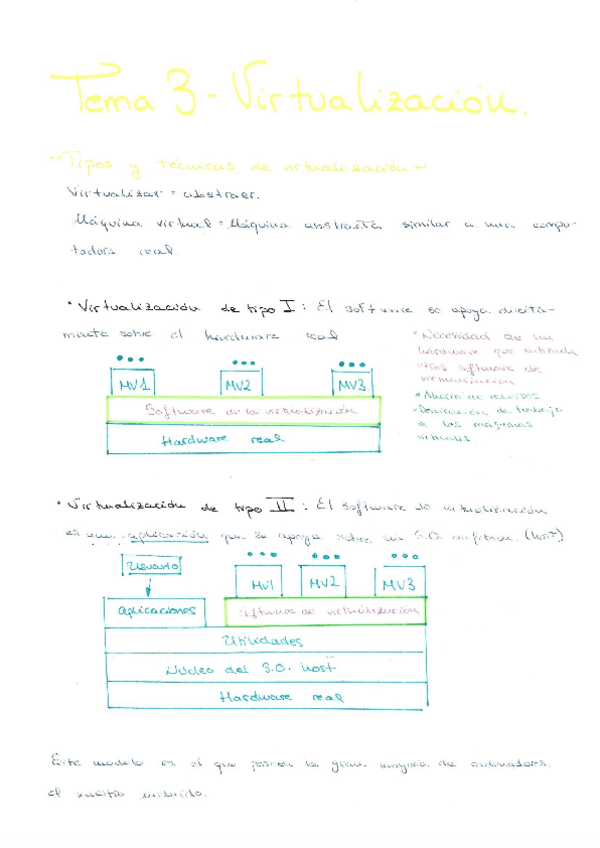 Tema 3 - Virtualización.
- Tipos y técnicas de virtualización -
Virtualizar = abstraer.
Máquina virtual = Máquina abstracta similar a una compu-
tadora real.
• Virtualización de tipo I : El software se apoya directa-
mente sobre el hardware real
• Necesidad de un
hardware que entienda
otros software de
virtualización
•
• Derivación de trabajo
a las máquinas
virtuales.
MV1 MV2 MV3
Software de la virtualización
Hardware real
• Virtualización de tipo II : El software de virtualización
es una aplicación que se apoya sobre un S.O. anfitrión. (host)
Usuario
MV1 MV2 MV3
aplicaciones
Software de virtualización
Utilidades
Núcleo del S.O. host
Hardware real
Este modelo es el que poseen la gran mayoría de ordenadores,
el nuestro incluido.